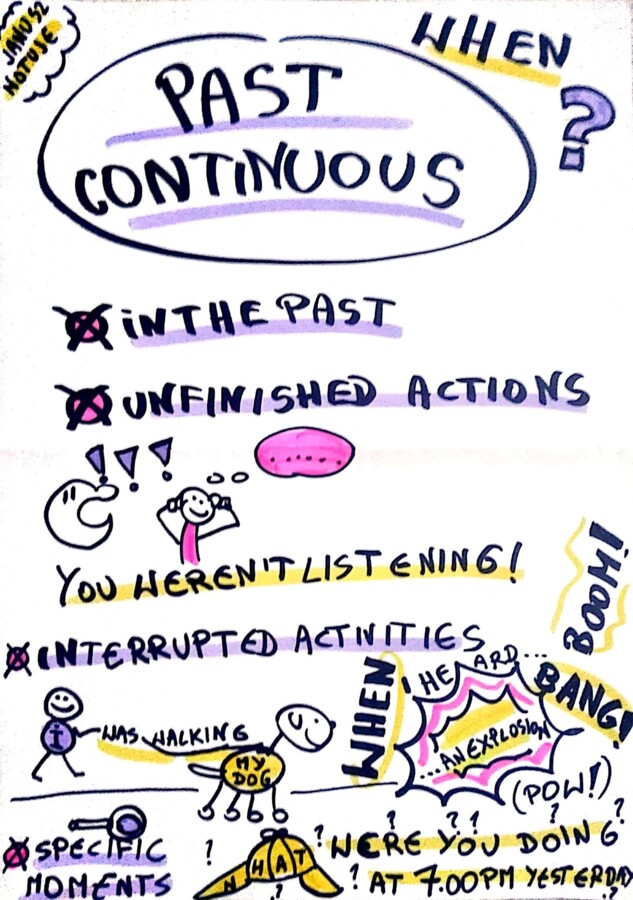 JANUSZ
NOTUJE
WHEN
?
PAST
CONTINUOUS
IN THE PAST
UNFINISHED ACTIONS
! ! !
......
YOU WEREN'T LISTENING!
BOOM!
INTERRUPTED ACTIVITIES
I WAS WALKING
MY
DOG
WHEN
I HEARD...
...AN EXPLOSION
BANG!
(POW!)
SPECIFIC
MOMENTS
WHAT
WERE YOU DOING
AT 7.00PM YESTERDAY